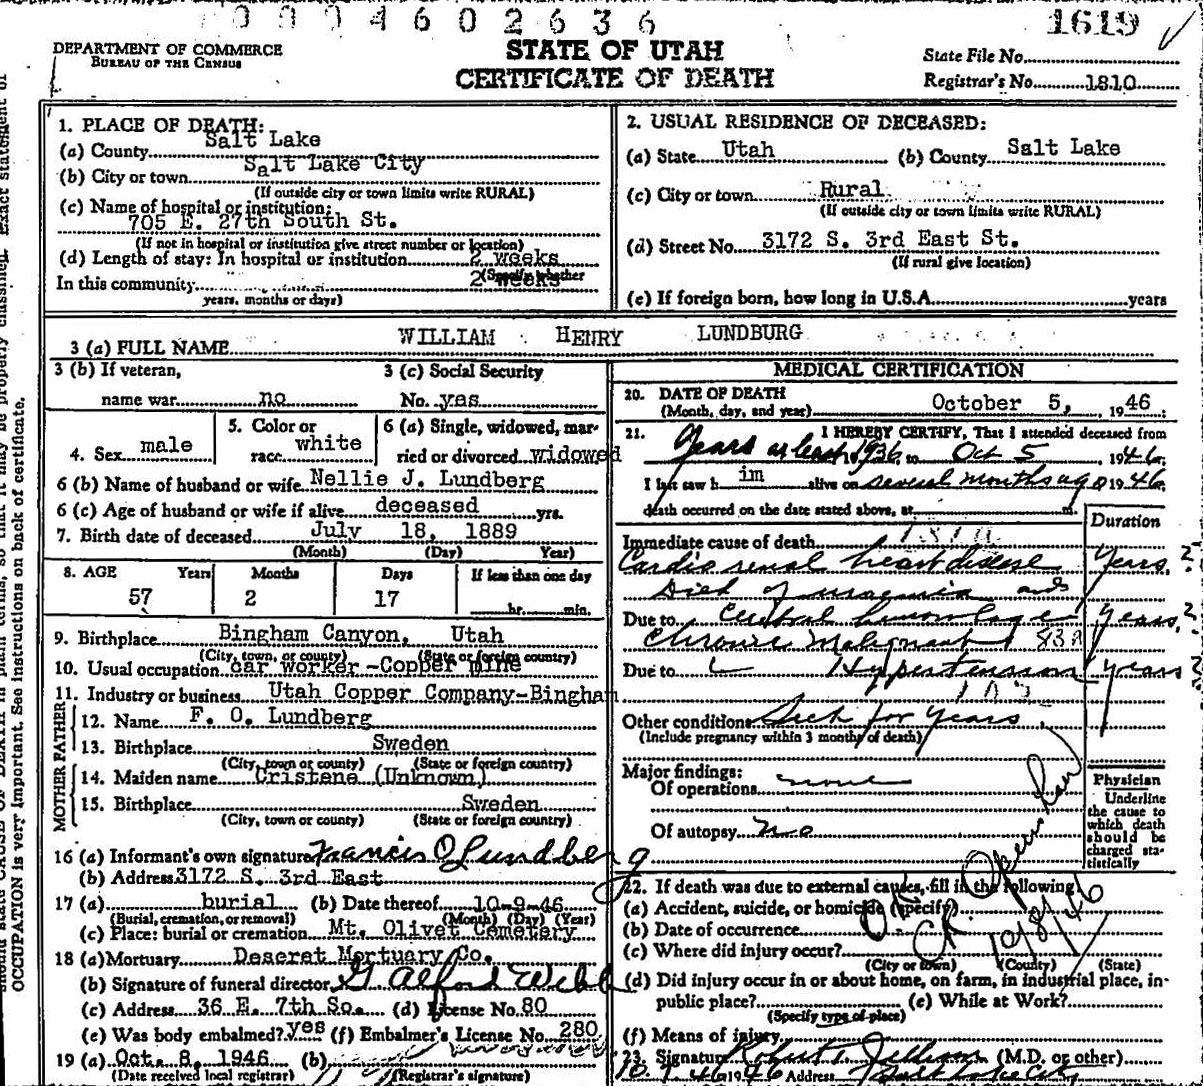 0004602636
1619
DEPARTMENT OF COMMERCE
BUREAU OF THE CENSUS
STATE OF UTAH
CERTIFICATE OF DEATH
State File No.
Registrar's No. 1810
1. PLACE OF DEATH:
(a) County Salt Lake
(b) City or town Salt Lake City
(If outside city or town limits write RURAL)
(c) Name of hospital or institution:
705 E. 27th South St.
(If not in hospital or institution give street number or location)
(d) Length of stay: In hospital or institution 2 weeks
(Specify whether
In this community 2 weeks
years, months or days)
2. USUAL RESIDENCE OF DECEASED:
(a) State Utah (b) County Salt Lake
(c) City or town Rural
(If outside city or town limits write RURAL)
(d) Street No. 3172 S. 3rd East St.
(If rural give location)
(e) If foreign born, how long in U.S.A. years
3 (a) FULL NAME WILLIAM HENRY LUNDBURG
3 (b) If veteran,
name war no
3 (c) Social Security
No. yes
4. Sex male
5. Color or
race white
6 (a) Single, widowed, mar-
ried or divorced widowed
6 (b) Name of husband or wife Nellie J. Lundberg
6 (c) Age of husband or wife if alive deceased yrs.
7. Birth date of deceased July 18, 1889
(Month) (Day) Year)
8. AGE Years Months Days If less than one day
57 2 17 hr. min.
9. Birthplace Bingham Canyon, Utah
(City, town, or county) (State or foreign country)
10. Usual occupation car worker-Copper mine
11. Industry or business Utah Copper Company-Bingham
FATHER
12. Name F. O. Lundberg
13. Birthplace Sweden
(City, town or county) (State or foreign country)
MOTHER
14. Maiden name Cristene (Unknown)
15. Birthplace Sweden
(City, town or county) (State or foreign country)
16 (a) Informant's own signature Francis O Lundberg
(b) Address 3172 S. 3rd East
17 (a) burial (b) Date thereof 10-9-46
(Burial, cremation, or removal) (Month) (Day) (Year)
(c) Place: burial or cremation Mt. Olivet Cemetery
18 (a) Mortuary Deseret Mortuary Co.
(b) Signature of funeral director G Alford Webb
(c) Address 36 E. 7th So. (d) License No. 80
(e) Was body embalmed? yes (f) Embalmer's License No. 280
19 (a) Oct. 8, 1946 (b)
(Date received local registrar) (Registrar's signature)
MEDICAL CERTIFICATION
20. DATE OF DEATH
(Month, day, and year) October 5, 1946
21. I HEREBY CERTIFY, That I attended deceased from
Years at least 1936 to Oct 5 1946
I last saw h im alive on several months ago 1946
death occurred on the date stated above, at m.
Duration
Immediate cause of death 131a
Cardio renal heart disease years ?
Died of uraemia and
Due to Cerebral hemorrhage years ?
Chronic Malignant 83a
Due to Hypertension years ?
Other conditions Sick for years
(Include pregnancy within 3 months of death)
Major findings:
Of operations none
Of autopsy no
Physician
Underline
the cause to
which death
should be
charged sta-
tistically
22. If death was due to external causes, fill in the following:
(a) Accident, suicide, or homicide (specify)
(b) Date of occurrence
(c) Where did injury occur?
(City or town) (County) (State)
(d) Did injury occur in or about home, on farm, in industrial place, in-
public place? (e) While at Work?
(Specify type of place)
(f) Means of injury
O.K.
10/8/46
23. Signature (M.D. or other)
Address Salt Lake City
OCCUPATION is very important. See instructions on back of certificate.